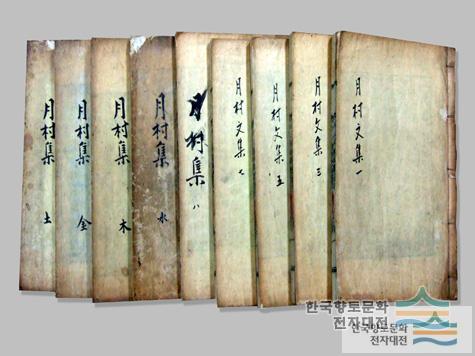 月村文集 一
月村文集 三
月村文集 五
月村文集 七
月村集 八
月村集 水
月村集 木
月村集 金
月村集 土
한국향토문화
전자대전
한국향토문화
전자대전